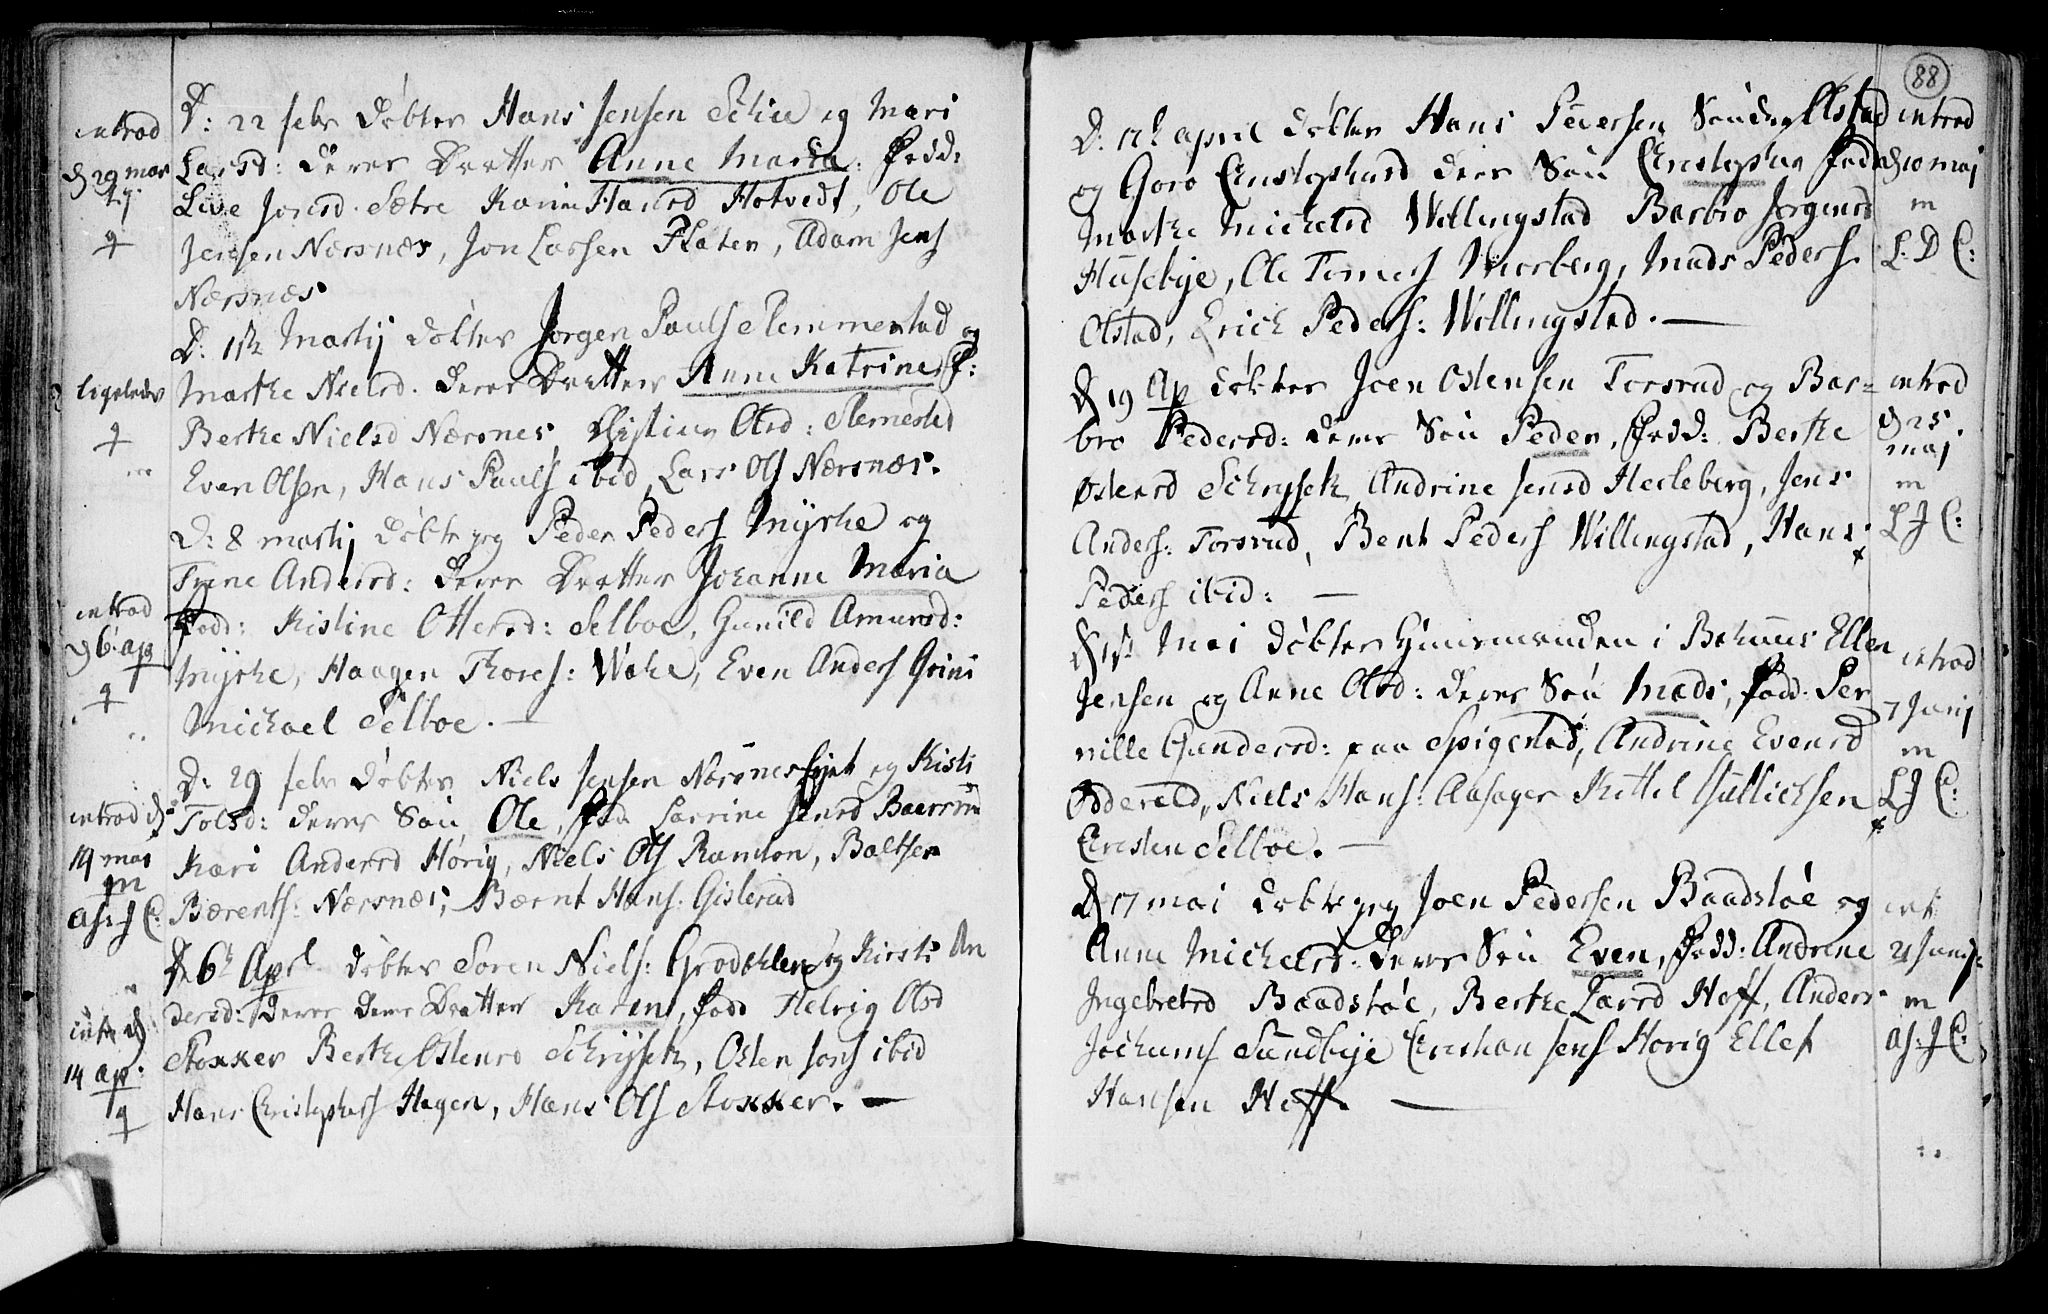 introd
d 29 mar
D: 22 febr döbter Hans Jensen Schie og Mari
Larsd: derer Dratter Anne Marta. Fadd:
Live Jonsd. Sætre Karin Hansd Hotvedt, Ole
Jensen Nærsnæs, Jon Larsen Platen, Adam Jens
Nærsnæs
ligeledes
D: 1ste Martij döbter Jørgen Pauls Slemmestad og
Marthe Nielsd. derer Dratter Anne Katrine F:
Berthe Nielsd Nærsnes, Christine Olsd: Slemestad
Even Olsen, Hans Pauls ibid, Lars Ols Nærsnæs.
introd
d 6 ap
D: 8 martij döbte jeg Peder Peders Myrhe og
Trene Andersd: derer Dratter Johanne Maria
Fadd: Kistine Ottersd: Selboe, Gunild Amunsd:
Myrhe, Haagen Thores: Wohe, Even Anders Grini
Michael Selboe. —
introd d
14 mai
m
D: 29 febr döbter Niels Jensen Nærsnes Ejet og Kisti
Tolsd: derer Sön Ole, Fad Karrine Jensd Baarsrud
Kari Andersd Hörig, Niels Ols Ramton, Baltser
Bærents: Nærsnæs, Bærnt Hans. Gislerud
intr d
14 ap.
D 6t Apr döbter Soren Niels: Grodthlen og Kirsti An
dersd: derer derer Dratter Karen, Fadd Helvig Olsd
Stokker Berthe Ostensd Schrysseth, Osten Jons ibid
Hans Christophers Hagen, Hans Ols Stokker. —
88
introd
d 10 maj
m
L. D C:
D. 12t april döbter Hans Pedersen Sönder Olstad
og Goro Christophersd derer Sön Christopher Fadd
Marthe Michelsd Willingstad Barbro Jørgensd
Husebye, Ole Tomas Morberg, Mads Peders.
Olstad, Erich Peders: Willingstad. —
introd
d 25
maj
m
L J C:
D 19 Ap döbter Joen Ostensen Torsrud og Bar=
bro Pedersd: derer Sön Peder, Fadd: Berthe
Ostensd Schryseth Andrine Jensd Herleberg, Jens
Anders: Torsrud, Bent Peders Willingstad, Hans
Peders ibid: —
introd
7 Junj
m
L J C:
D 1st Mai döbter Huusmanden i Bohuus Ellen
Jensen og Anne Olsd: derer Sön Mads, Fadd. Per
nille Gundersd: paa Spigestad, Andrine Evensd
Odderald, Niels Hans: Aasager Kittil Gullichsen
Cristen Selboe. —
int
21 Junij
m
as. J C:
D 17 mai döbte jeg Joen Pedersen Baadstöe og
Anne Michelsd. derer Sön Even, Fadd: Andrine
Ingebretsd Baadstöe, Berthe Larsd Hoff, Anders
Jochums Sundbye Christian Jens Hörig Ellef
Hansen Hoff. —